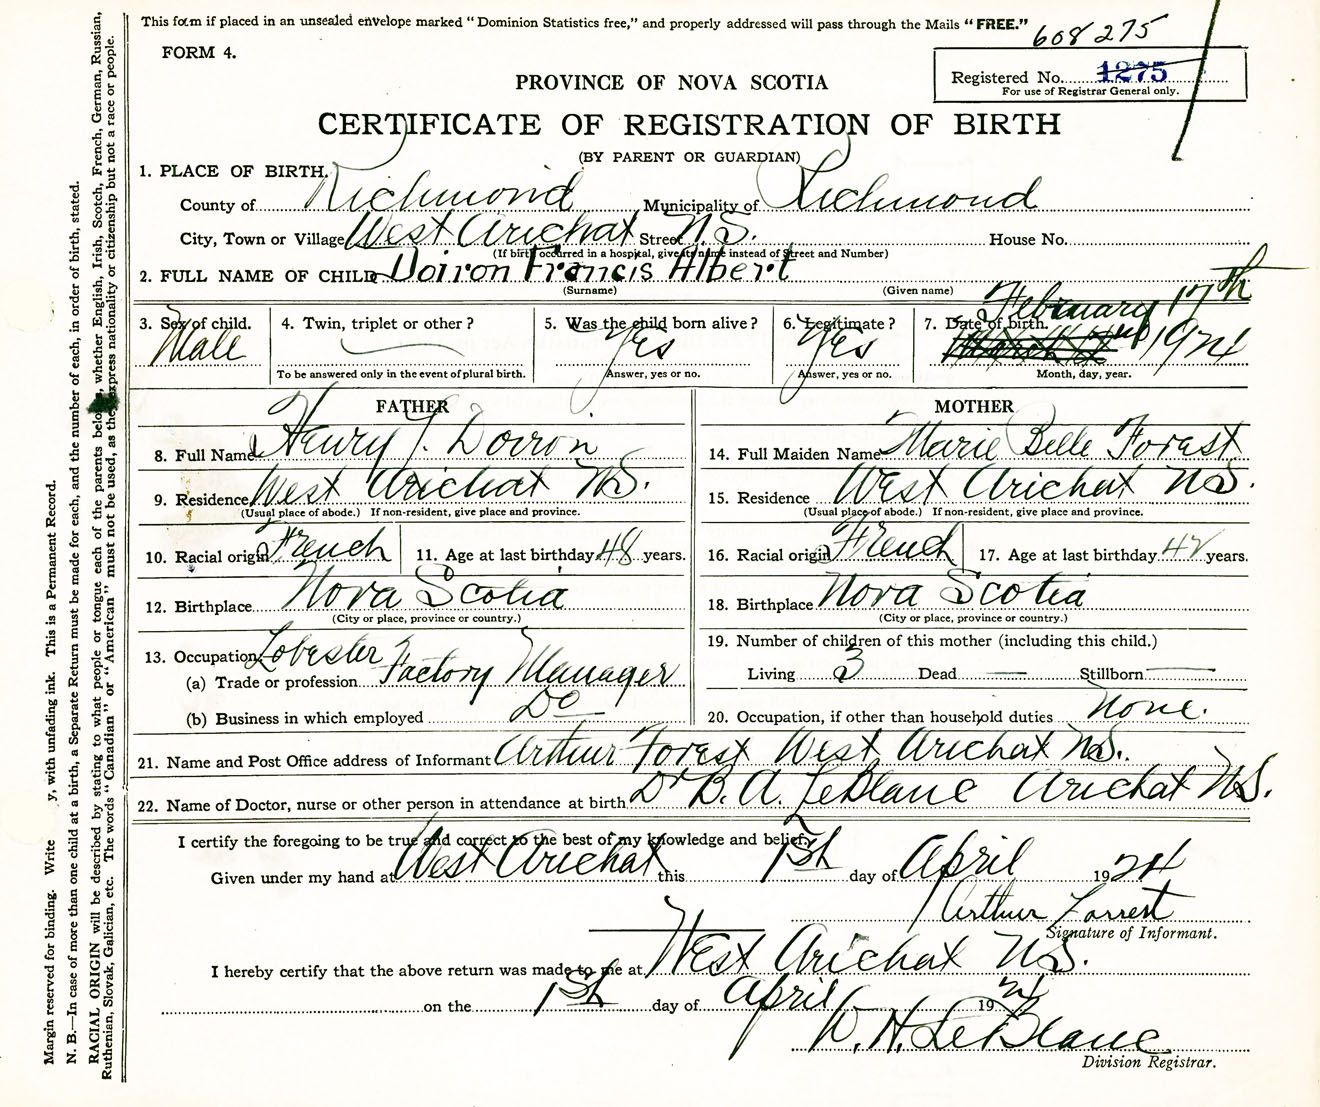 This form if placed in an unsealed envelope marked "Dominion Statistics free," and properly addressed will pass through the Mails "FREE."
608275
FORM 4.
Registered No. 1275
For use of Registrar General only.
PROVINCE OF NOVA SCOTIA
CERTIFICATE OF REGISTRATION OF BIRTH
(BY PARENT OR GUARDIAN)
1. PLACE OF BIRTH.
County of Richmond Municipality of Richmond
City, Town or Village West Arichat Street N.S. House No.
(If birth occurred in a hospital, give its name instead of Street and Number)
2. FULL NAME OF CHILD Doiron Francis Albert
(Surname) (Given name)
February 17th
3. Sex of child. 4. Twin, triplet or other? 5. Was the child born alive? 6. Legitimate? 7. Date of birth.
Male Yes Yes 1924
To be answered only in the event of plural birth. Answer, yes or no. Answer, yes or no. Month, day, year.
FATHER
8. Full Name Henry J. Doiron
9. Residence West Arichat N.S.
(Usual place of abode.) If non-resident, give place and province.
10. Racial origin French 11. Age at last birthday 48 years.
12. Birthplace Nova Scotia
(City or place, province or country.)
13. Occupation Lobester
(a) Trade or profession Factory Manager
(b) Business in which employed Do
MOTHER
14. Full Maiden Name Marie Belle Forest
15. Residence West Arichat N.S.
(Usual place of abode.) If non-resident, give place and province.
16. Racial origin French 17. Age at last birthday 42 years.
18. Birthplace Nova Scotia
(City or place, province or country.)
19. Number of children of this mother (including this child.)
Living 3 Dead — Stillborn —
20. Occupation, if other than household duties None.
21. Name and Post Office address of Informant Arthur Forest West Arichat N.S.
22. Name of Doctor, nurse or other person in attendance at birth Dr B. A. LeBlanc Arichat N.S.
I certify the foregoing to be true and correct to the best of my knowledge and belief.
Given under my hand at West Arichat this 1st day of April 1924
Arthur Forrest
Signature of Informant.
I hereby certify that the above return was made to me at West Arichat N.S.
on the 1st day of April 1924
W. H. LeBlanc
Division Registrar.
Margin reserved for binding. Write y, with unfading ink. This is a Permanent Record.
N. B.—In case of more than one child at a birth, a Separate Return must be made for each, and the number of each, in order of birth, stated.
RACIAL ORIGIN will be described by stating to what people or tongue each of the parents belong, whether English, Irish, Scotch, French, German, Russian,
Ruthenian, Slovak, Galician, etc. The words "Canadian" or "American" must not be used, as they express nationality or citizenship but not a race or people.